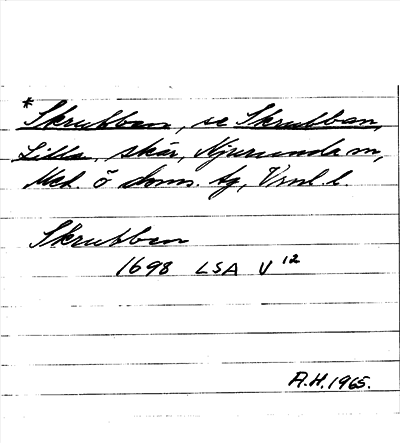 *Skrubban, se Skrubban,
Lilla, skär, Njurunda sn,
Med. ö doms. tg, Vrnl. l.
Skrubban
1698 LSA V 12
A.H. 1965.